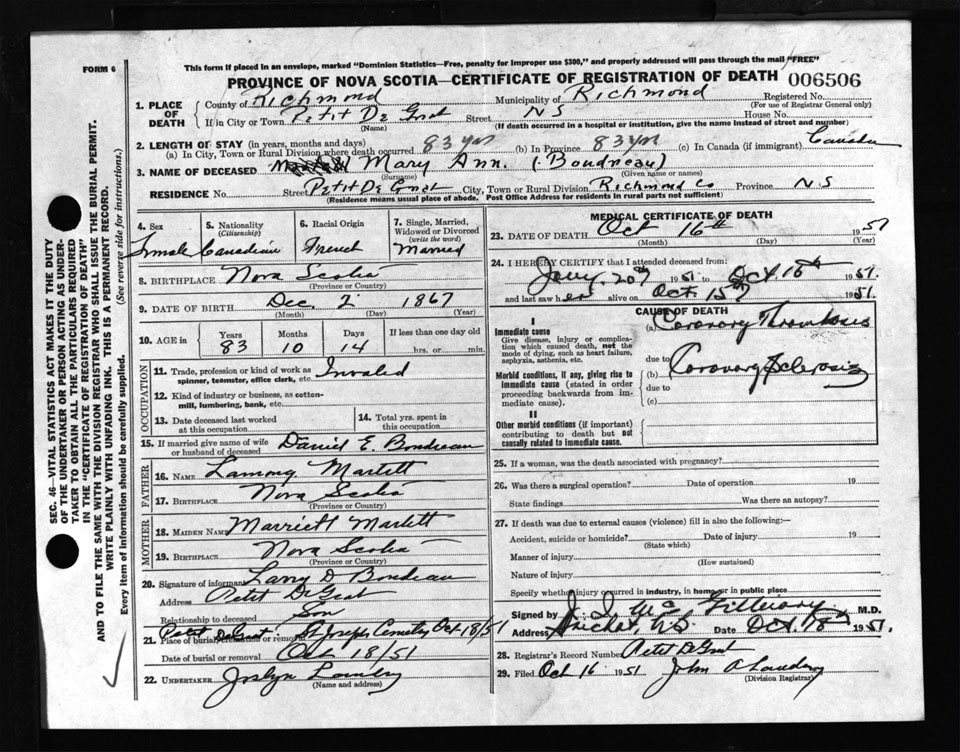 FORM 6
This form if placed in an envelope, marked "Dominion Statistics—Free, penalty for improper use $300," and properly addressed will pass through the mail "FREE"
PROVINCE OF NOVA SCOTIA—CERTIFICATE OF REGISTRATION OF DEATH 006506
1. PLACE OF DEATH
County of Richmond Municipality of Richmond Registered No.
(For use of Registrar General only)
If in City or Town Petit De Grat Street NS House No.
(Name) (If death occurred in a hospital or institution, give the name instead of street and number)
2. LENGTH OF STAY (in years, months and days)
(a) In City, Town or Rural Division where death occurred 83 yrs (b) In Province 83 yrs (c) In Canada (if immigrant) Canada
3. NAME OF DECEASED Mary Ann. (Boudreau)
(Surname) (Given name or names)
RESIDENCE No. Street Petit De Grat City, Town or Rural Division Richmond Co Province N S
(Residence means usual place of abode. Post Office Address for residents in rural parts not sufficient)
4. Sex
Female
5. Nationality
(Citizenship)
Canadian
6. Racial Origin
French
7. Single, Married, Widowed or Divorced
(write the word)
Married
8. BIRTHPLACE Nova Scotia
(Province or Country)
9. DATE OF BIRTH Dec. 2 1867
(Month) (Day) (Year)
10. AGE in
Years
83
Months
10
Days
14
If less than one day old
hrs. or min.
OCCUPATION
11. Trade, profession or kind of work as spinner, teamster, office clerk, etc. Invalid
12. Kind of industry or business, as cotten-mill, lumbering, bank, etc.
13. Date deceased last worked at this occupation
14. Total yrs. spent in this occupation
15. If married give name of wife or husband of deceased Daniel E. Boudreau
FATHER
16. NAME Martett
17. BIRTHPLACE Nova Scotia
(Province or Country)
MOTHER
18. MAIDEN NAME Marriett Martett
19. BIRTHPLACE Nova Scotia
(Province or Country)
20. Signature of informant Larry D Boudreau
Address Petit De Grat
Relationship to deceased Son
21. Petit De Grat St Josephs Cemetery Oct 18/51
Place of burial, cremation or removal
Date of burial or removal Oct 18/51
22. UNDERTAKER
(Name and address)
MEDICAL CERTIFICATE OF DEATH
23. DATE OF DEATH Oct 16th 1951
(Month) (Day) (Year)
24. I HEREBY CERTIFY that I attended deceased from:
Jany. 20th 1951 to Oct. 16th 1951.
and last saw her alive on Oct 15th 1951.
CAUSE OF DEATH
I
Immediate cause
Give disease, injury or complication which caused death, not the mode of dying, such as heart failure, asphyxia, asthenia, etc.
(a) Coronary Thrombosis
due to
Morbid conditions, if any, giving rise to immediate cause (stated in order proceeding backwards from immediate cause).
(b) Coronary Sclerosis
due to
(c)
II
Other morbid conditions (if important) contributing to death but not causally related to immediate cause.
25. If a woman, was the death associated with pregnancy?
26. Was there a surgical operation? Date of operation 19
State findings Was there an autopsy?
27. If death was due to external causes (violence) fill in also the following:—
Accident, suicide or homicide? Date of injury 19
(State which)
Manner of injury
(How sustained)
Nature of injury
Specify whether injury occurred in industry, in home or in public place
Signed by M.D.
Address Arichat, N.S. Date Oct. 18th 1951.
28. Registrar's Record Number Petit De Grat
29. Filed Oct 16 1951 John A
(Division Registrar)
SEC. 46—VITAL STATISTICS ACT MAKES IT THE DUTY OF THE UNDERTAKER OR PERSON ACTING AS UNDERTAKER TO OBTAIN ALL THE PARTICULARS REQUIRED IN THE "CERTIFICATE OF REGISTRATION OF DEATH" AND TO FILE THE SAME WITH THE DIVISION REGISTRAR WHO SHALL ISSUE THE BURIAL PERMIT.
WRITE PLAINLY WITH UNFADING INK. THIS IS A PERMANENT RECORD.
Every item of information should be carefully supplied. (See reverse side for instructions.)